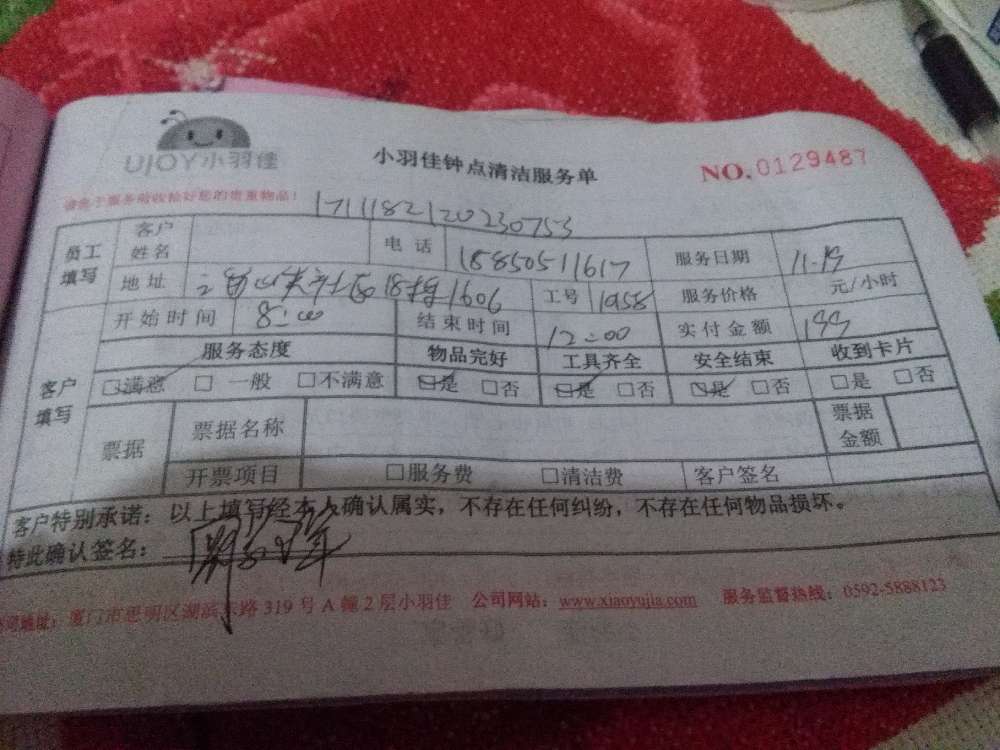 UJOY小羽佳
小羽佳钟点清洁服务单
NO.0129487
请您于服务前收拾好您的贵重物品！
171118212020230753
员工填写 客户姓名 电话 18850511617 服务日期 11.19
地址 社区18楼1606 工号 1958 服务价格 元/小时
客户填写 开始时间 8:00 结束时间 12:00 实付金额
服务态度 物品完好 工具齐全 安全结束 收到卡片
□满意 □一般 □不满意 □是 □否 □是 □否 □是 □否 □是 □否
票据 票据名称 票据金额
开票项目 □服务费 □清洁费 客户签名
客户特别承诺：以上填写经本人确认属实，不存在任何纠纷，不存在任何物品损坏。
特此确认签名：
公司地址：厦门市思明区湖滨东路319号A幢2层小羽佳 公司网站：www.xiaoyujia.com 服务监督热线：0592-5888123